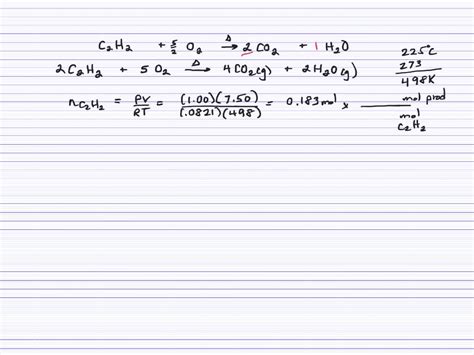 C₂H₂ + 5/2 O₂ —Δ→ 2 CO₂ + 1 H₂O
2C₂H₂ + 5 O₂ —Δ→ 4 CO₂(g) + 2 H₂O(g)
225°C
273
498K
nC₂H₂ = PV/RT = (1.00)(7.50)/(.0821)(498) = 0.183 mol x mol prod/mol C₂H₂